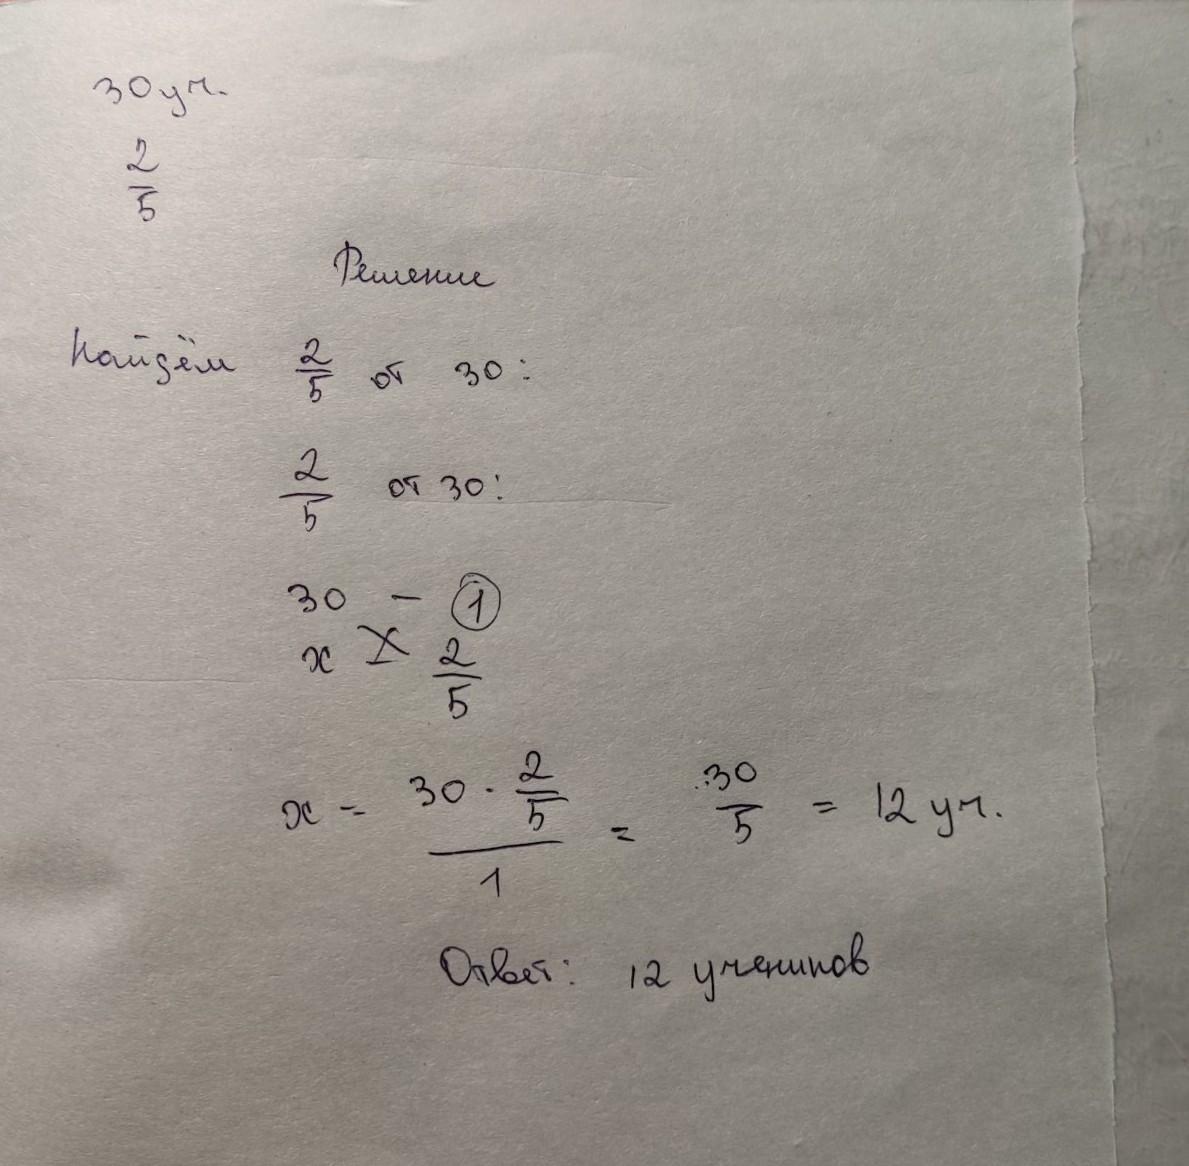 30 уч.
2/5
Решение
Найдём 2/5 от 30:
2/5 от 30:
30 – 1
x X 2/5
x = (30 · 2/5)/1 = 30/5 = 12 уч.
Ответ: 12 учеников